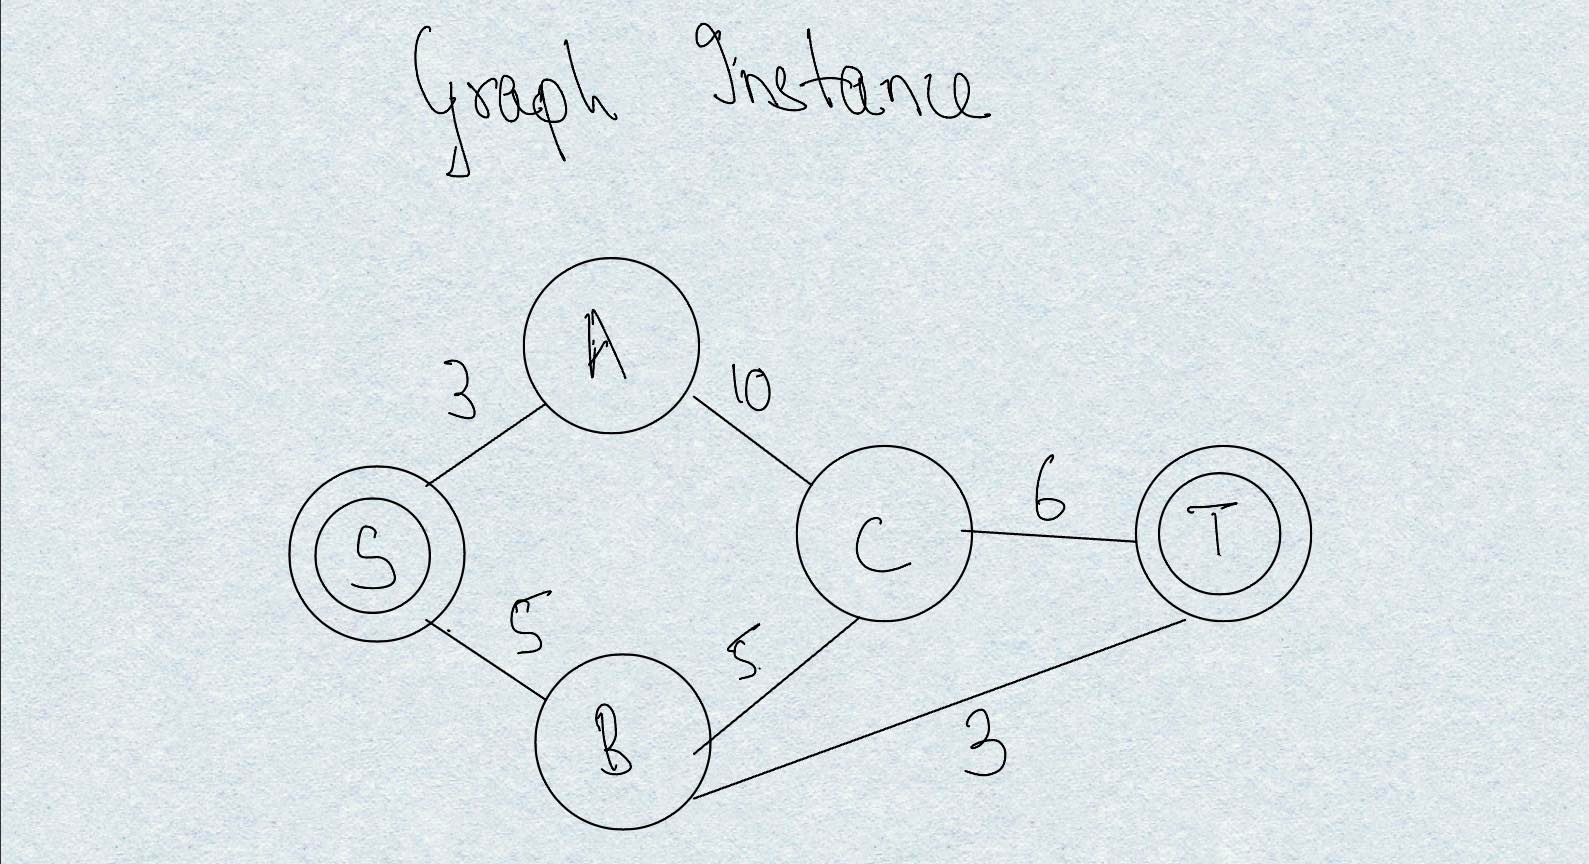 Graph Instance
A
3
10
6
S
C
T
5
5
B
3